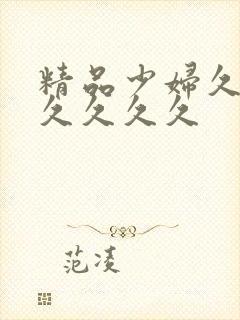 精品少婦久
久久久久
范凌